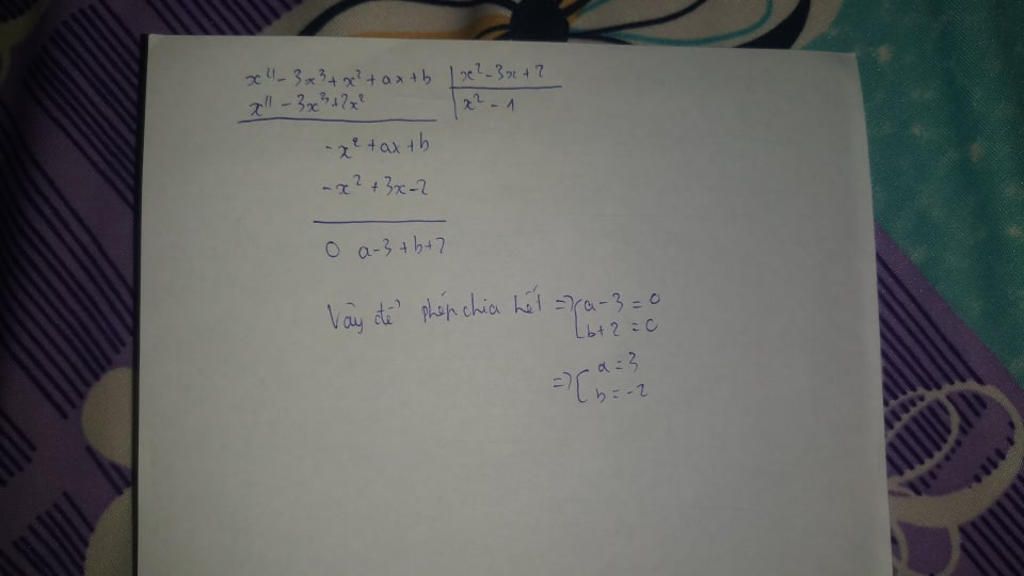 x⁴ - 3x³ + x² + ax + b | x² - 3x + 2
x⁴ - 3x³ + 2x² | x² - 1
- x² + ax + b
- x² + 3x - 2
0 a - 3 + b + 2
Vậy để phép chia hết => { a - 3 = 0
b + 2 = 0
=> { a = 3
b = -2